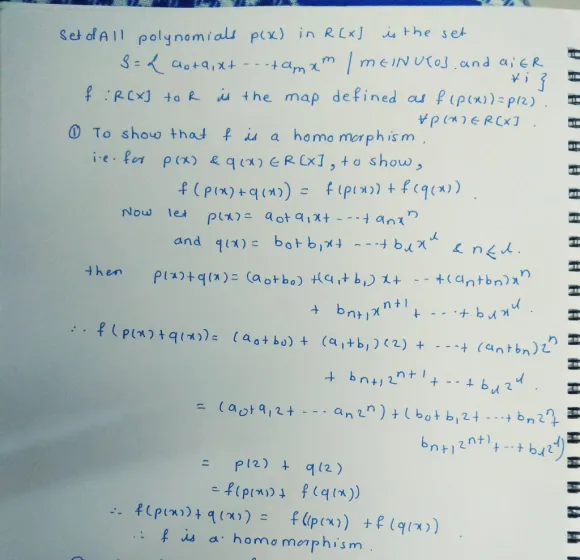 Set of All polynomials p(x) in R[x] is the set
S = { a₀+a₁x+ ---+aₘxᵐ | m∈INU{0}. and aᵢ∈R
∀i }
f : R[x] to R is the map defined as f(p(x))=p(2).
∀p(x)∈R[x].
① To show that f is a homomorphism.
i.e. for p(x) & q(x)∈R[x], to show,
f(p(x)+q(x)) = f(p(x))+f(q(x)).
Now let p(x)= a₀+a₁x+---+aₙxⁿ
and q(x)= b₀+b₁x+ ---+b_l x^l & n≤l.
then p(x)+q(x)=(a₀+b₀)+(a₁+b₁)x+ --+(aₙ+bₙ)xⁿ
+ bₙ₊₁xⁿ⁺¹+ --.+b_l x^l.
∴ f(p(x)+q(x))= (a₀+b₀) + (a₁+b₁)(2) + ---+(aₙ+bₙ)2ⁿ
+ bₙ₊₁2ⁿ⁺¹+ --+b_l 2^l.
= (a₀+a₁2+ ---aₙ2ⁿ)+(b₀+b₁2+---+bₙ2ⁿ+
bₙ₊₁2ⁿ⁺¹+--+b_l 2^l)
= p(2) + q(2)
= f(p(x))+ f(q(x))
∴ f(p(x))+q(x)) = f((p(x)) +f(q(x)).
∴ f is a homomorphism.